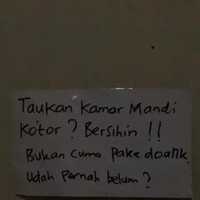 Taukan Kamar Mandi
Kotor? Bersihin!!
Bukan cuma pake doank.
Udah Pernah belum?